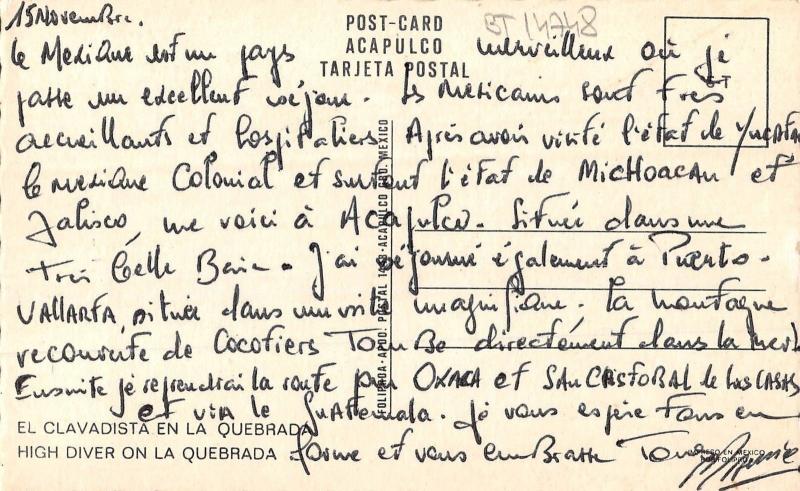 15 Novembre.
POST-CARD
ACAPULCO
TARJETA POSTAL
BT 14748
le Mexique est un pays merveilleux où je
passe un excellent séjour. Les Mexicains sont très
accueillants et hospitaliers. Après avoir visité l'état de Yucatan
le mexique Colonial et surtout l'état de MICHOACAN et
Jalisco, me voici à Acapulco. Située dans une
très belle Baie. J'ai séjourné également à Puerto-
VALLARTA, située dans un site magnifique. la montagne
recouverte de Cocotiers Tombe directement dans la mer.
Ensuite je reprendrai la route pour OXACA et SAN CRISTOBAL de LAS CASAS
et via le Guatemala. Je vous espère Tous en
forme et vous embrasse Tous
EL CLAVADISTA EN LA QUEBRADA
HIGH DIVER ON LA QUEBRADA
IMPRESO EN MEXICO